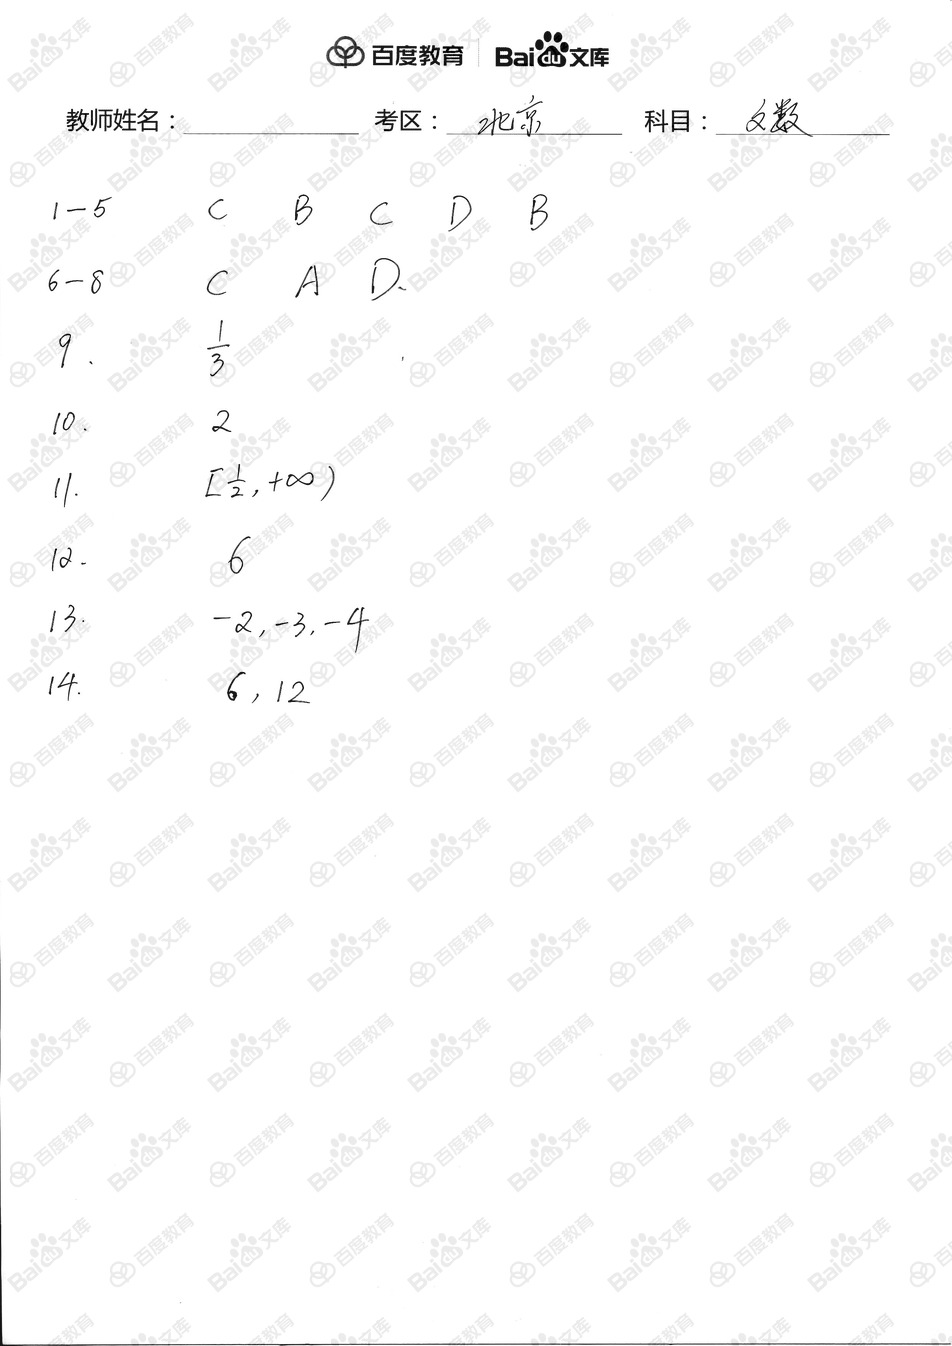 百度教育 Bai du 文库
教师姓名：　考区：北京　科目：文数
1-5 C B C D B
6-8 C A D.
9. 1/3
10. 2
11. [1/2, +∞)
12. 6
13. -2, -3, -4
14. 6, 12